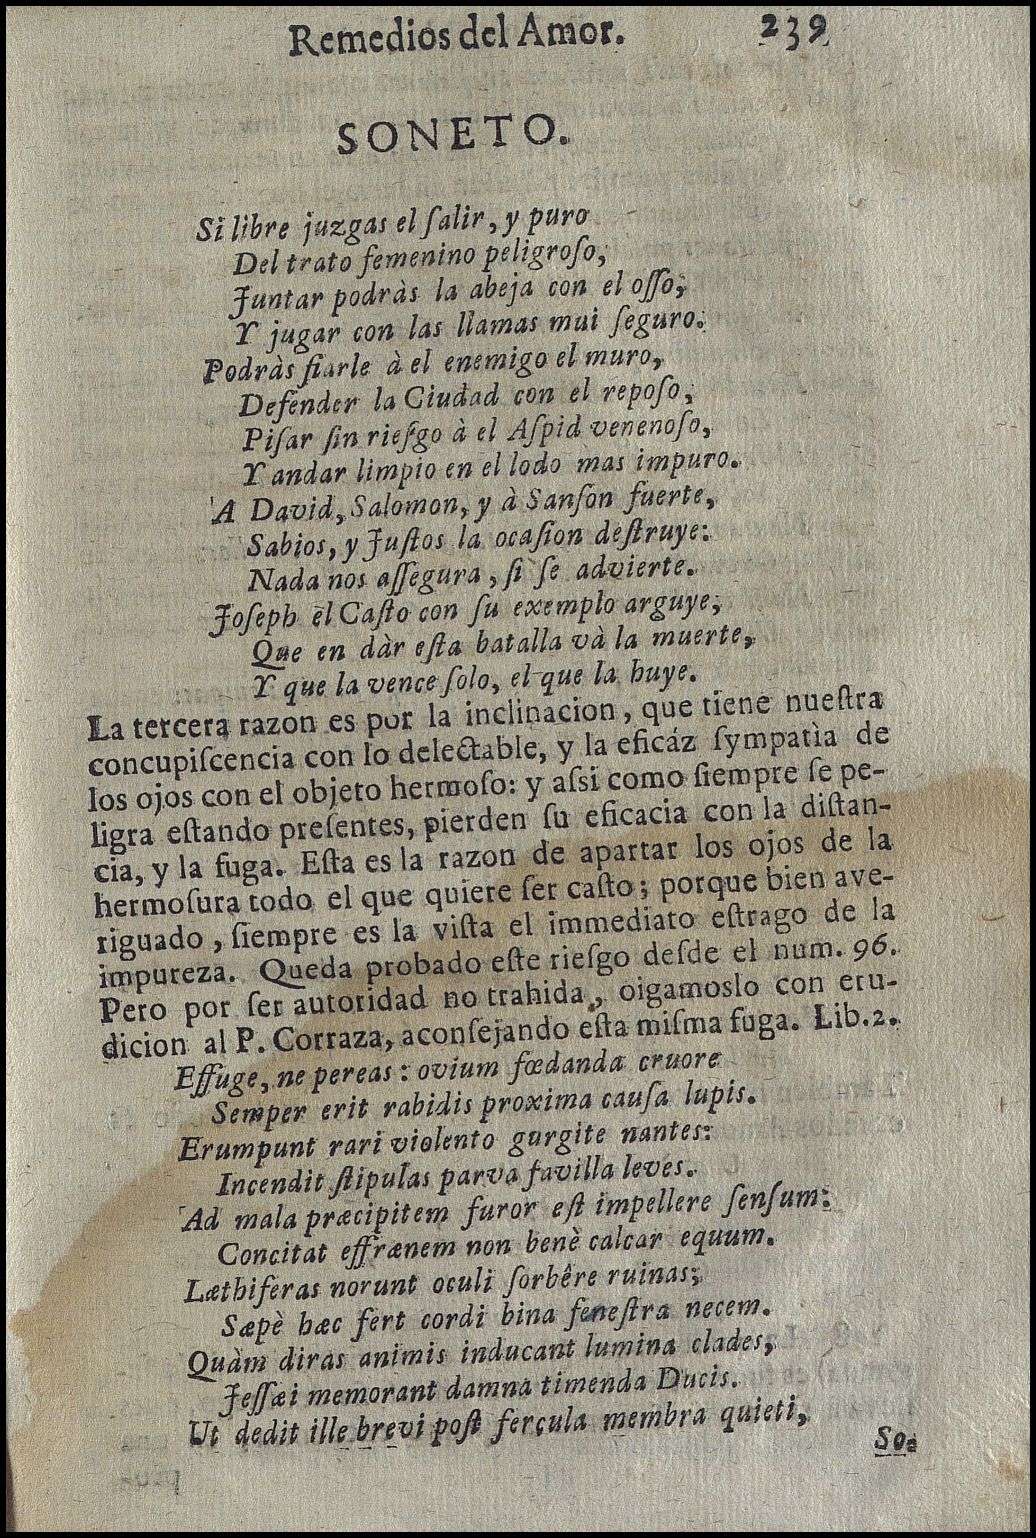 Remedios del Amor. 239
SONETO.
Si libre juzgas el ſalir, y puro
Del trato femenino peligroſo,
Juntar podràs la abeja con el oſſo,
Y jugar con las llamas mui ſeguro.
Podràs fiarle à el enemigo el muro,
Defender la Ciudad con el repoſo,
Piſar ſin rieſgo à el Aſpid venenoſo,
Y andar limpio en el lodo mas impuro.
A David, Salomon, y à Sanſon fuerte,
Sabios, y Juſtos la ocaſion deſtruye:
Nada nos aſſegura, ſi ſe advierte.
Joſeph el Caſto con ſu exemplo arguye,
Que en dàr eſta batalla và la muerte,
Y que la vence ſolo, el que la huye.
La tercera razon es por la inclinacion, que tiene nueſtra
concupiſcencia con lo delectable, y la eficáz ſympatìa de
los ojos con el objeto hermoſo: y aſsi como ſiempre ſe pe-
ligra eſtando preſentes, pierden ſu eficacia con la diſtan-
cia, y la fuga. Eſta es la razon de apartar los ojos de la
hermoſura todo el que quiere ſer caſto; porque bien ave-
riguado, ſiempre es la viſta el immediato eſtrago de la
impureza. Queda probado eſte rieſgo deſde el num. 96.
Pero por ſer autoridad no trahida, oigamoslo con eru-
dicion al P. Corraza, aconſejando eſta miſma fuga. Lib. 2.
Effuge, ne pereas: ovium fœdanda cruore
Semper erit rabidis proxima cauſa lupis.
Erumpunt rari violento gurgite nantes:
Incendit ſtipulas parva favilla leves.
Ad mala præcipitem furor eſt impellere ſenſum:
Concitat effrænem non benè calcar equum.
Læthiferas norunt oculi ſorbêre ruinas;
Sæpè hæc fert cordi bina feneſtra necem.
Quàm diras animis inducant lumina clades,
Jeſſæi memorant damna timenda Ducis.
Ut dedit ille brevi poſt fercula membra quieti,
So-